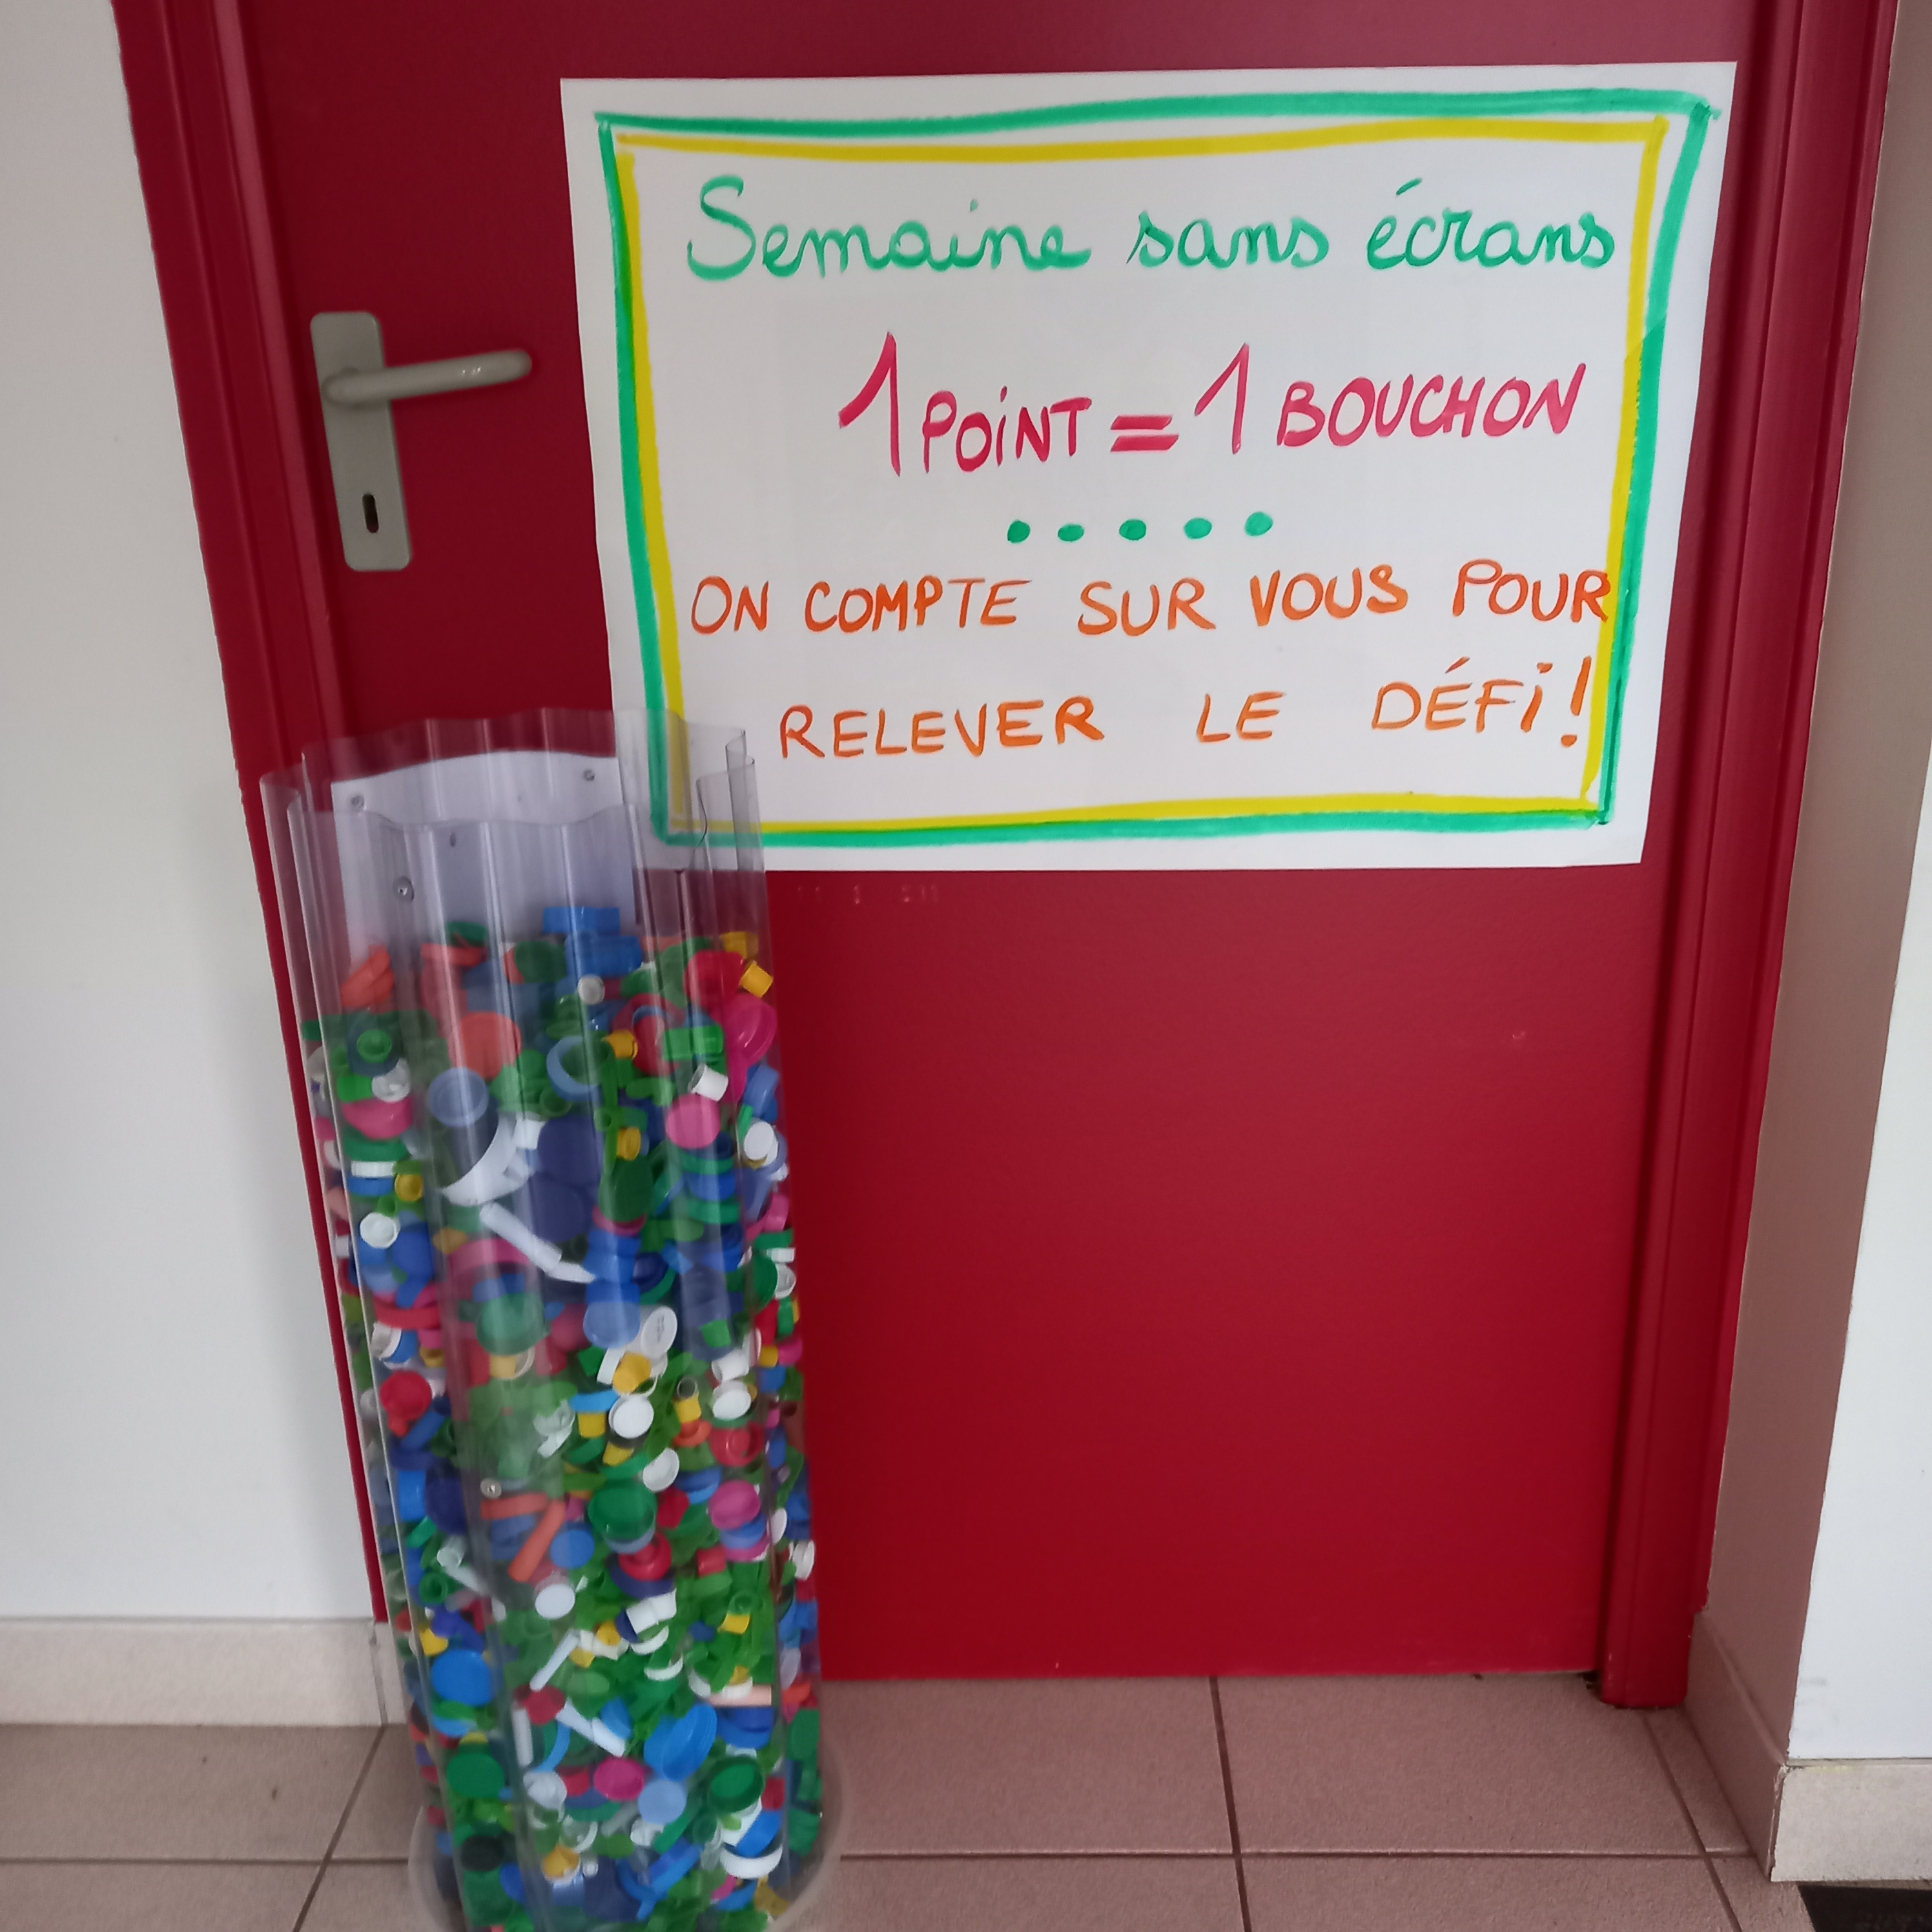 Semaine sans écrans
1 POINT = 1 BOUCHON
.....
ON COMPTE SUR VOUS POUR
RELEVER LE DÉFI !